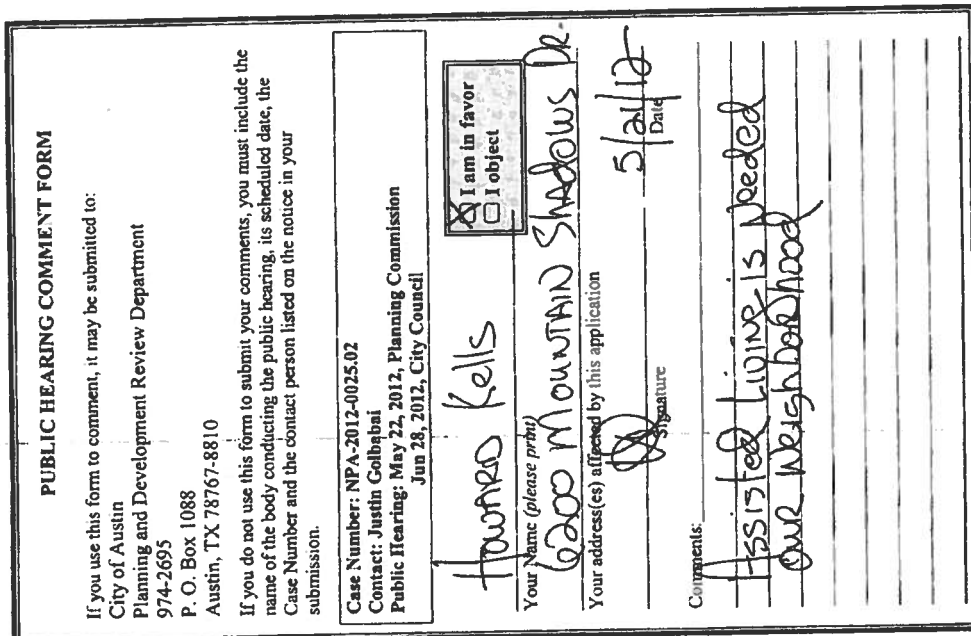 PUBLIC HEARING COMMENT FORM
If you use this form to comment, it may be submitted to:
City of Austin
Planning and Development Review Department
974-2695
P. O. Box 1088
Austin, TX 78767-8810
If you do not use this form to submit your comments, you must include the
name of the body conducting the public hearing, its scheduled date, the
Case Number and the contact person listed on the notice in your
submission.
Case Number: NPA-2012-0025.02
Contact: Justin Golbabai
Public Hearing: May 22, 2012, Planning Commission
Jun 28, 2012, City Council
I am in favor
I object
Howard Kells
Your Name (please print)
6200 Mountain Shadows Dr.
Your address(es) affected by this application
5/21/12
Signature
Date
Comments:
Assisted Living is Needed
Our Neighborhood